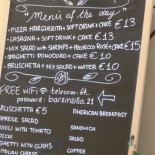 "Menu of the day"
• PIZZA MARGHERITA + SOFT DRINK + CAKE €13
• LASAGNA + SOFT DRINK + CAKE €13
• MIX SALAD WITH SHRIMPS + PROSECCO ROSE + CAKE €15
• SPAGHETTI POMODORO + CAKE €10
• BRUSCHETTA + MIX SALAD + WATER €10
FREE WiFi telecom-61
password: barcinzilla.21
BRUSCHETTA €5 AMERICAN BREAKFAST
CAPRESE SALAD
RAVIOLI WITH TOMATO SANDWICH
SALAD
SPAGHETTI WITH CLAMS COFFEE
ITALIAN